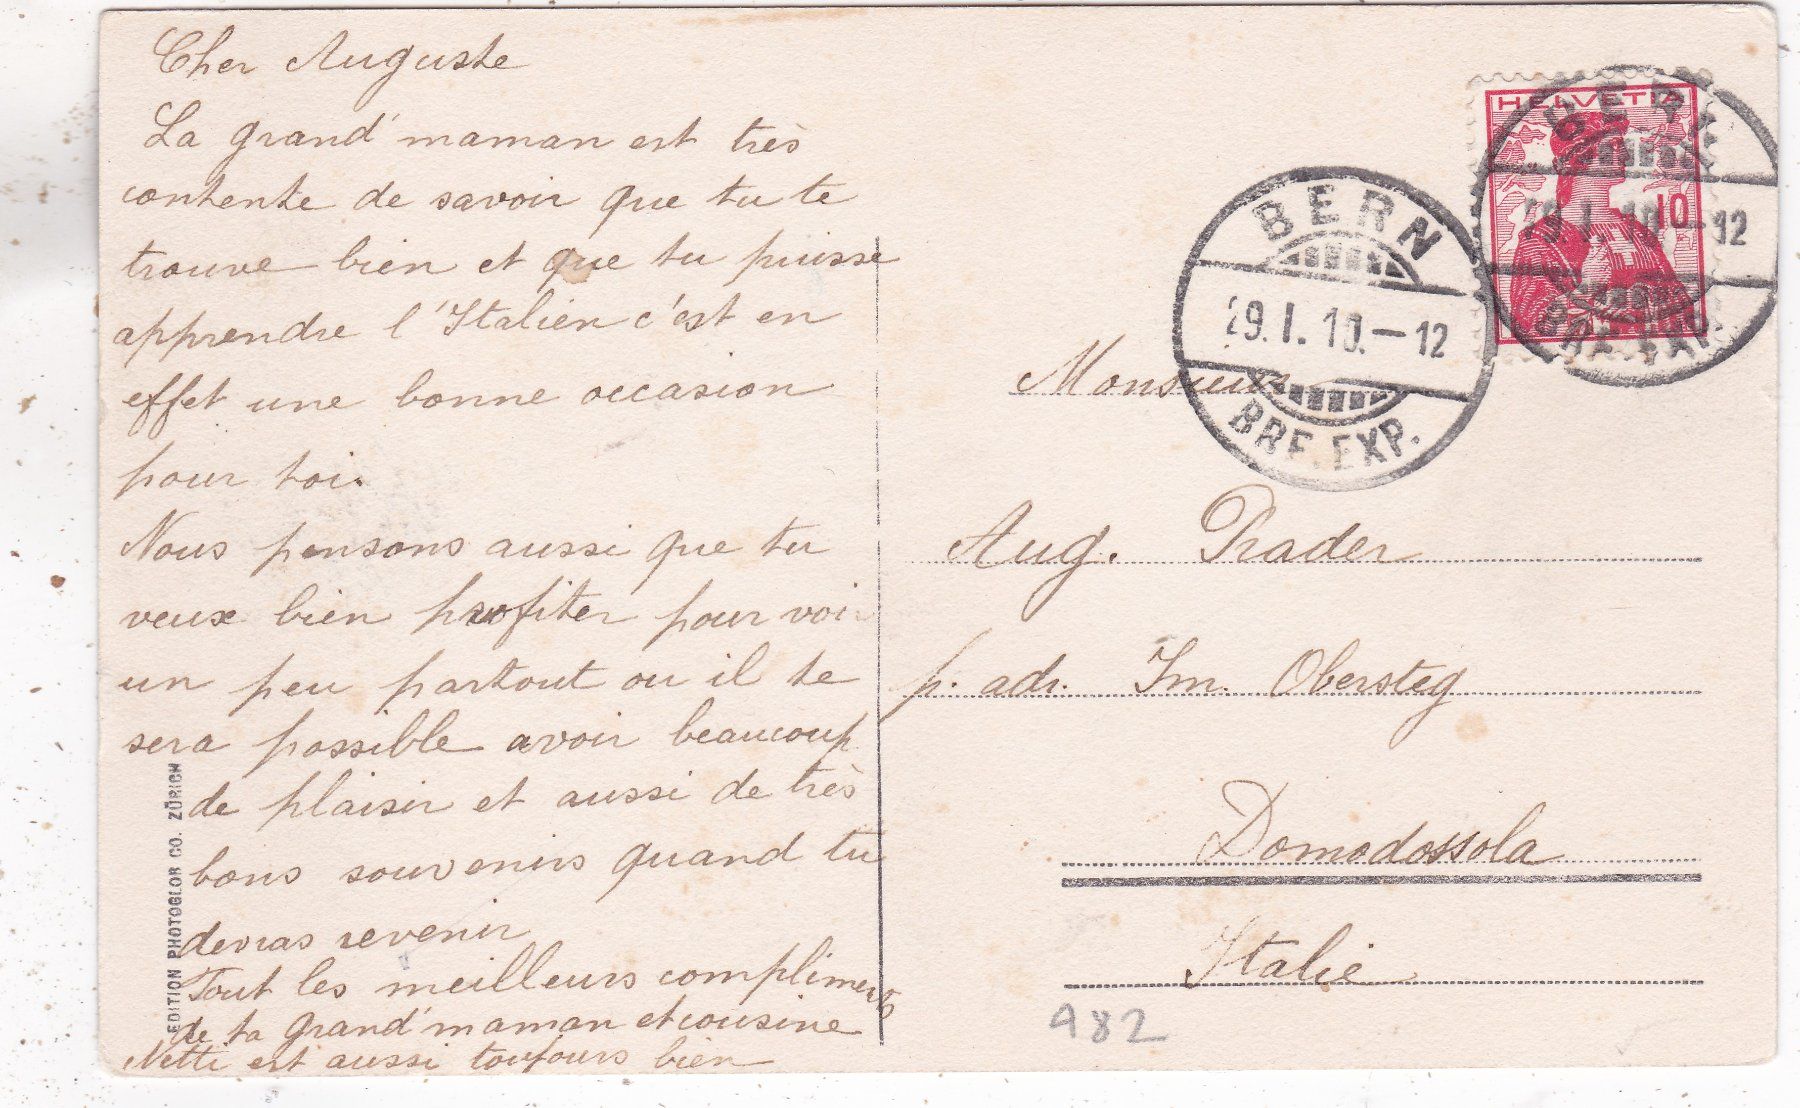 Cher Auguste
La grand'maman est très
contente de savoir que tu te
trouve bien et que tu puisse
apprendre l'Italien c'est en
effet une bonne occasion
pour toi.
Nous pensons aussi que tu
veux bien profiter pour voir
un peu partout ou il te
sera possible avoir beaucoup
de plaisir et aussi de très
bons souvenirs quand tu
devras revenir
Tout les meilleurs compliments
de ta grand'maman et cousine
Netti est aussi toujours bien
EDITION PHOTOGLOB CO. ZÜRICH
HELVETIA
10
BERN
29.I.10.-12
BRF. EXP.
BERN
29.I.10.-12
BRF. EXP.
Monsieur
Aug. Prader
p. adr. Im. Obersteg
Domodossola
Italie
982